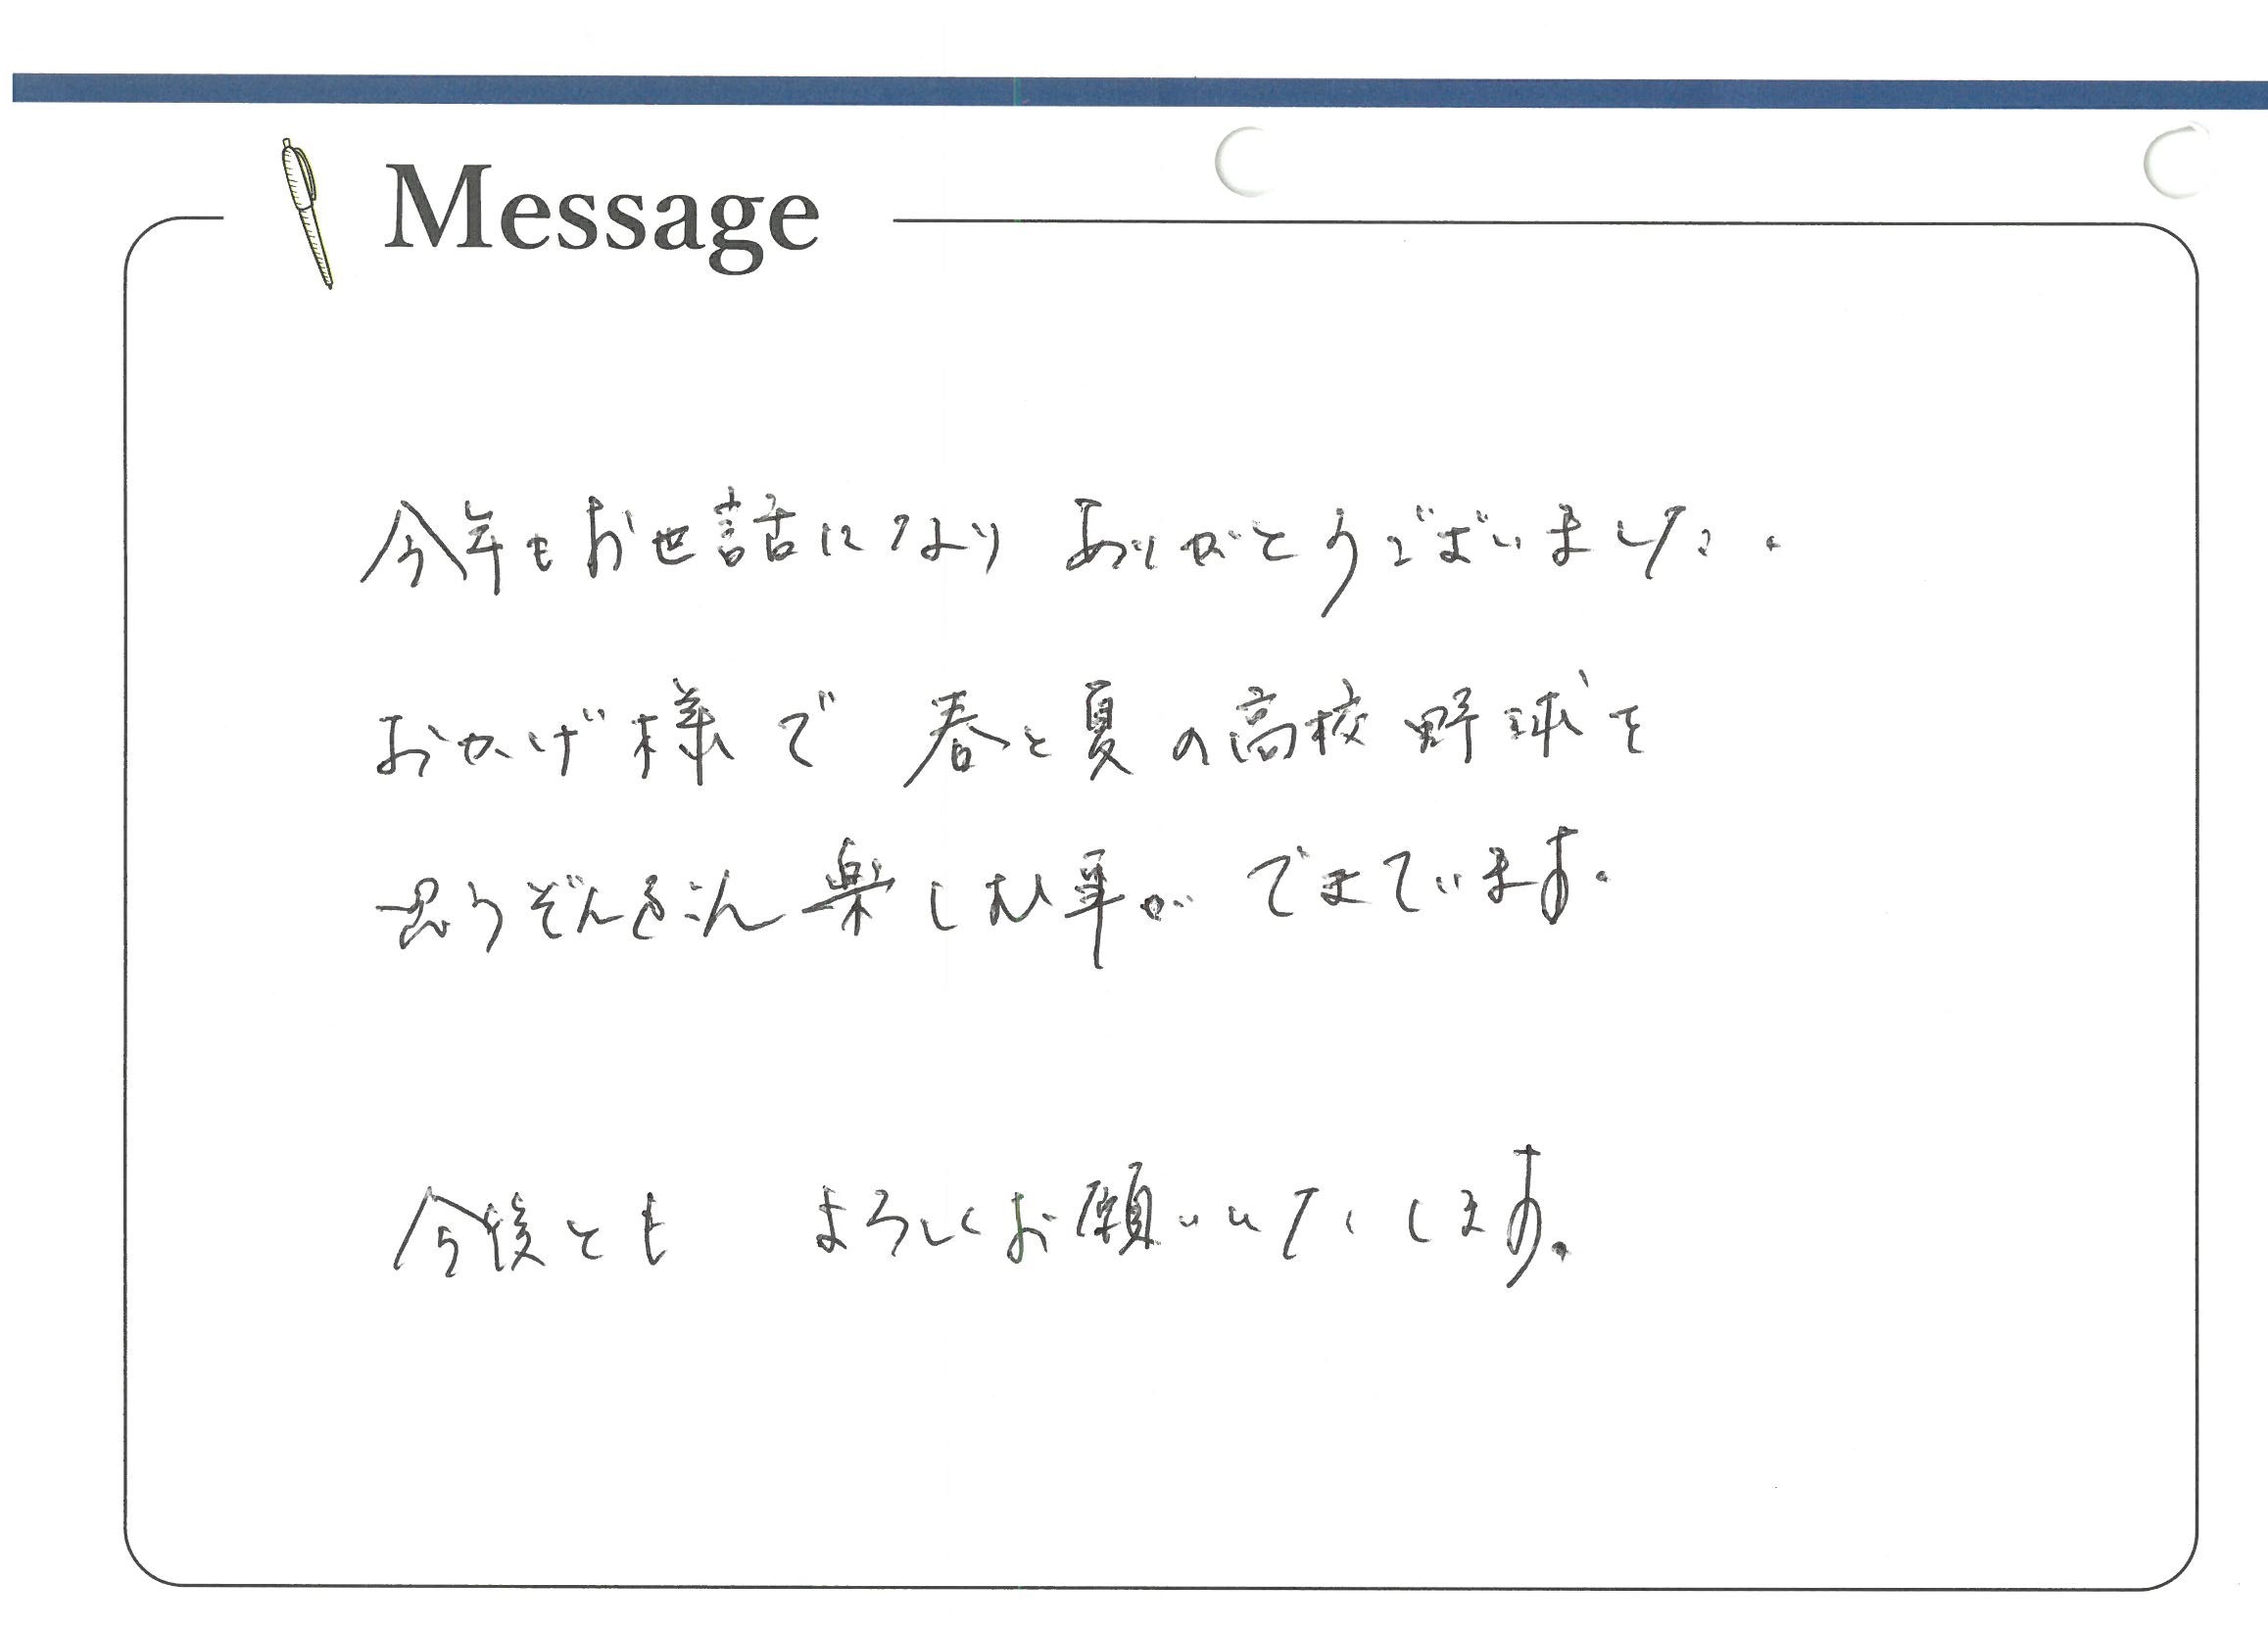 Message
今年もお世話になり ありがとうございました.
おかげ様で 春と夏の高校野球を
思うぞんぶん楽しむ事が できています.
今後とも よろしくお願いいたします.